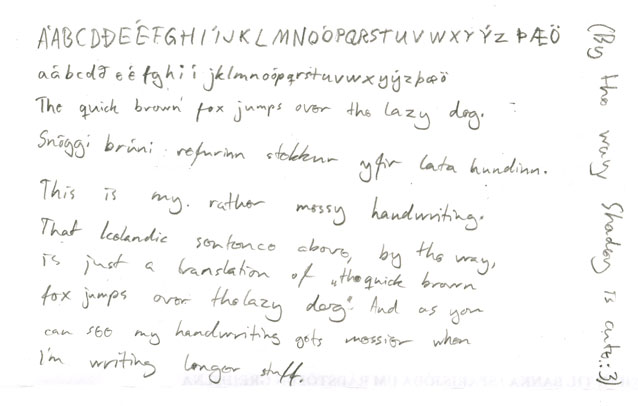 AÁBCDÐEÉFGHIÍJKLMNOÓPQRSTUVWXYÝZÞÆÖ
aábcdð eé fghií jklmnoópqrstuvwxyýzþæö
The quick brown fox jumps over the lazy dog.
Snöggi brúni refurinn stekkur yfir lata hundinn.
This is my rather messy handwriting.
That Icelandic sentence above, by the way,
is just a translation of „the quick brown
fox jumps over the lazy dog“. And as you
can see my handwriting gets messier when
I'm writing longer stuff
(By the way Shadey is cute :3)